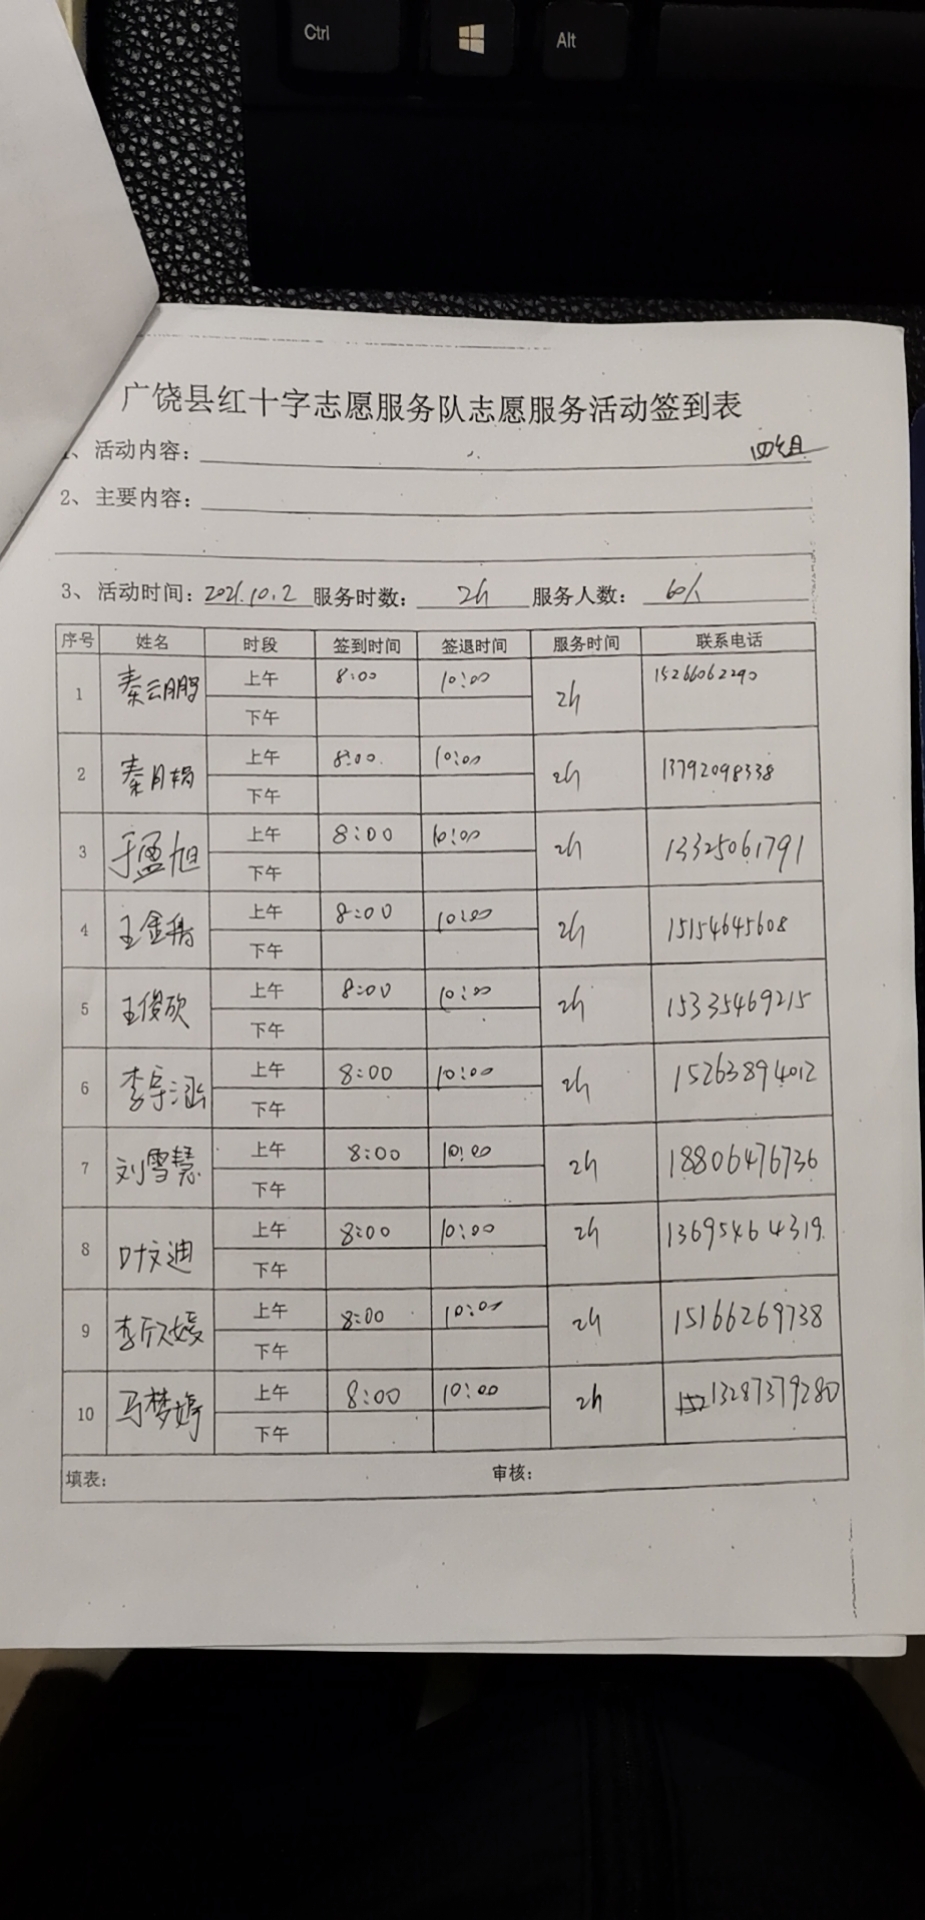 Ctrl
Alt
广饶县红十字志愿服务队志愿服务活动签到表
、活动内容： 四组
2、主要内容：
3、活动时间：2021.10.2 服务时数： 2h 服务人数： 60人
序号 姓名 时段 签到时间 签退时间 服务时间 联系电话
1 秦云鹏 上午 8:00 10:00 2h 15266062290
下午
2 秦月梅 上午 8:00. 10:00 2h 13792098338
下午
3 于盈旭 上午 8:00 10:00 2h 13325061791
下午
4 王金 上午 8:00 10:00 2h 15154645608
下午
5 王俊欣 上午 8:00 10:00 2h 15335469215
下午
6 李宇涵 上午 8:00 10:00 2h 15263894012
下午
7 刘雪慧 上午 8:00 10:00 2h 18806476736
下午
8 叶文迪 上午 8:00 10:00 2h 13695464319.
下午
9 李欣媛 上午 8:00 10:00 2h 15166269738
下午
10 马梦婷 上午 8:00 10:00 2h 13287379280
下午
填表： 审核：